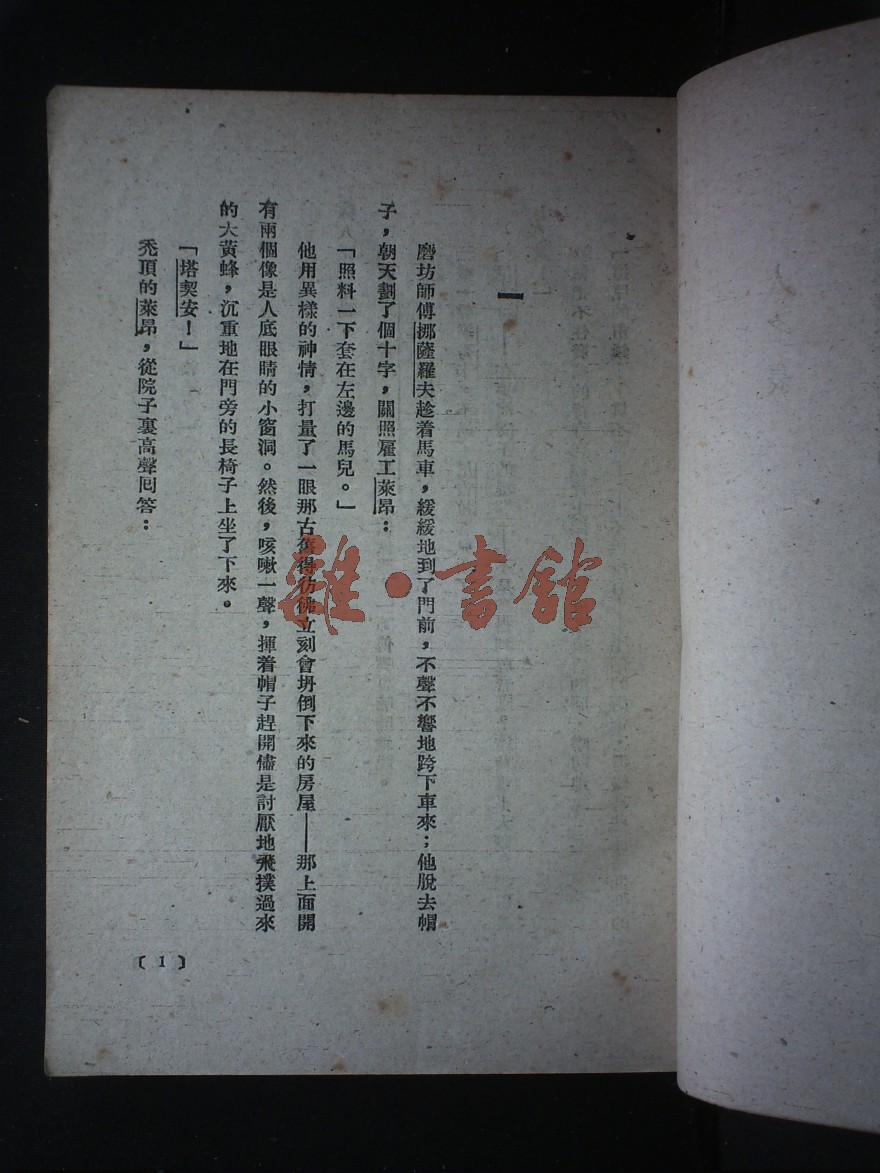 一
磨坊師傅挪薩羅夫趁着馬車，緩緩地到了門前，不聲不響地跨下車來；他脫去帽
子，朝天劃了個十字，關照雇工萊昂：
「照料一下套在左邊的馬兒。」
他用異樣的神情，打量了一眼那古舊得彷彿立刻會坍倒下來的房屋——那上面開
有兩個像是人底眼睛的小窗洞。然後，咳嗽一聲，揮着帽子趕開儘是討厭地飛撲過來
的大黃蜂，沉重地在門旁的長椅子上坐了下來。
「塔契安！」
禿頂的萊昂，從院子裏高聲回答：
〔1〕
雜·書館